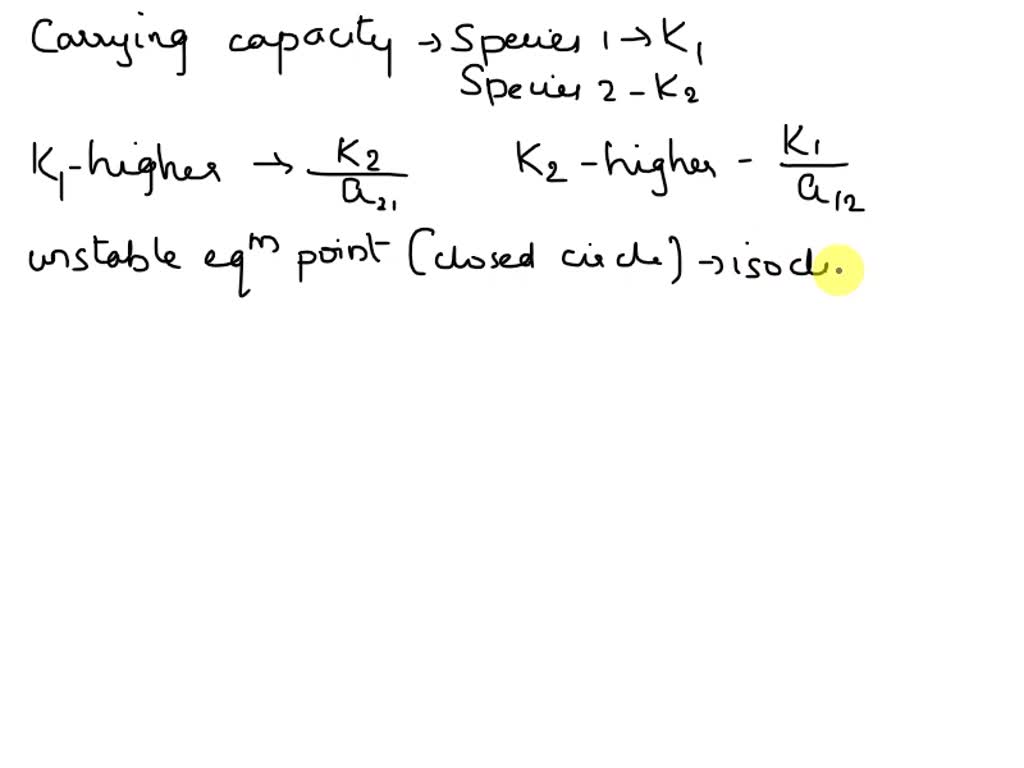 Carrying capacity → Species 1 → K₁
Species 2 - K₂
K₁-higher → K₂/a₂₁ K₂-higher - K₁/a₁₂
unstable eqᵐ point (closed circle) → isocl.